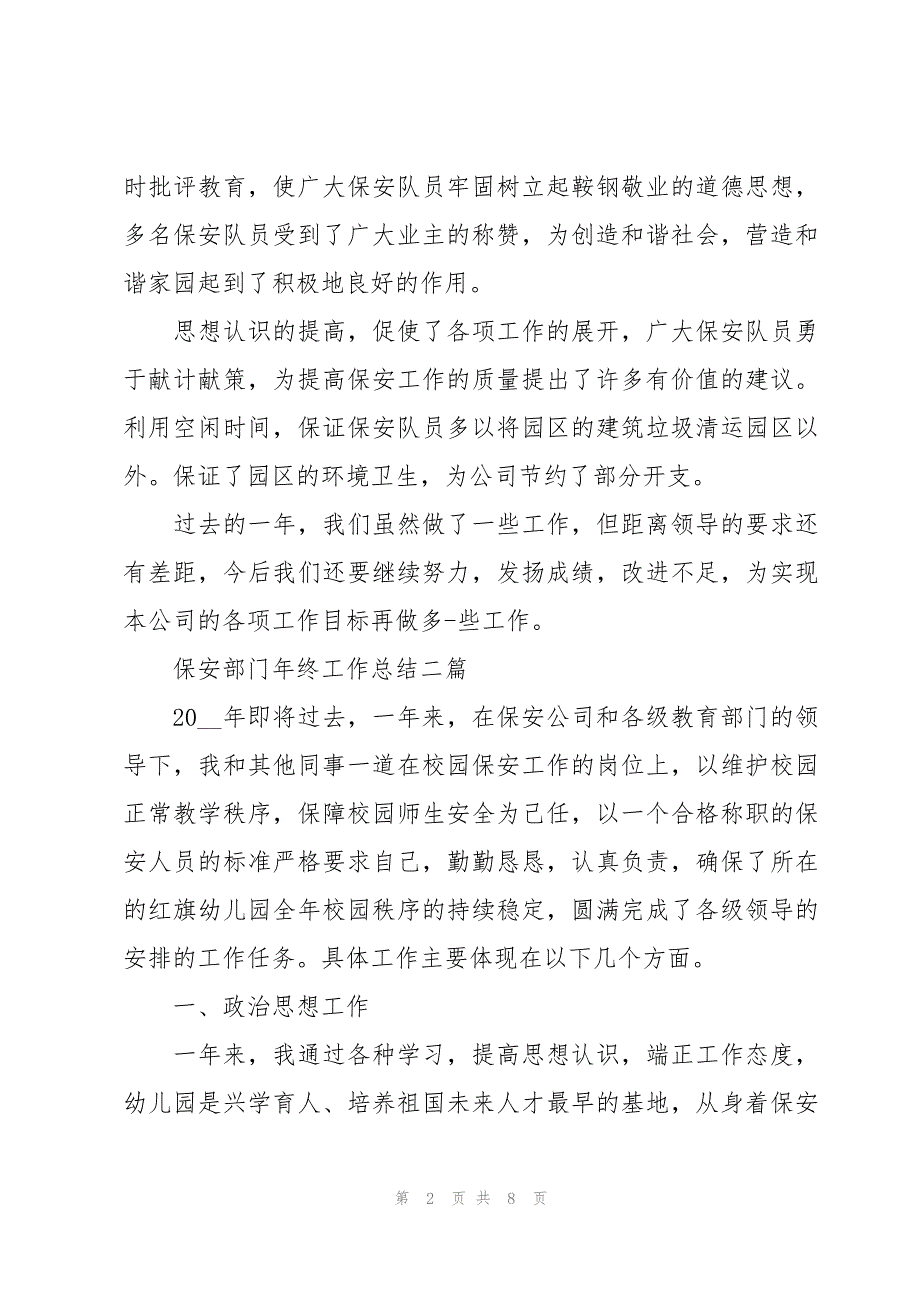 时批评教育，使广大保安队员牢固树立起鞍钢敬业的道德思想，
多名保安队员受到了广大业主的称赞，为创造和谐社会，营造和
谐家园起到了积极地良好的作用。
思想认识的提高，促使了各项工作的展开，广大保安队员勇
于献计献策，为提高保安工作的质量提出了许多有价值的建议。
利用空闲时间，保证保安队员多以将园区的建筑垃圾清运园区以
外。保证了园区的环境卫生，为公司节约了部分开支。
过去的一年，我们虽然做了一些工作，但距离领导的要求还
有差距，今后我们还要继续努力，发扬成绩，改进不足，为实现
本公司的各项工作目标再做多-些工作。
保安部门年终工作总结二篇
20__年即将过去，一年来，在保安公司和各级教育部门的领
导下，我和其他同事一道在校园保安工作的岗位上，以维护校园
正常教学秩序，保障校园师生安全为己任，以一个合格称职的保
安人员的标准严格要求自己，勤勤恳恳，认真负责，确保了所在
的红旗幼儿园全年校园秩序的持续稳定，圆满完成了各级领导的
安排的工作任务。具体工作主要体现在以下几个方面。
一、政治思想工作
一年来，我通过各种学习，提高思想认识，端正工作态度，
幼儿园是兴学育人、培养祖国未来人才最早的基地，从身着保安
第 2 页 共 8 页